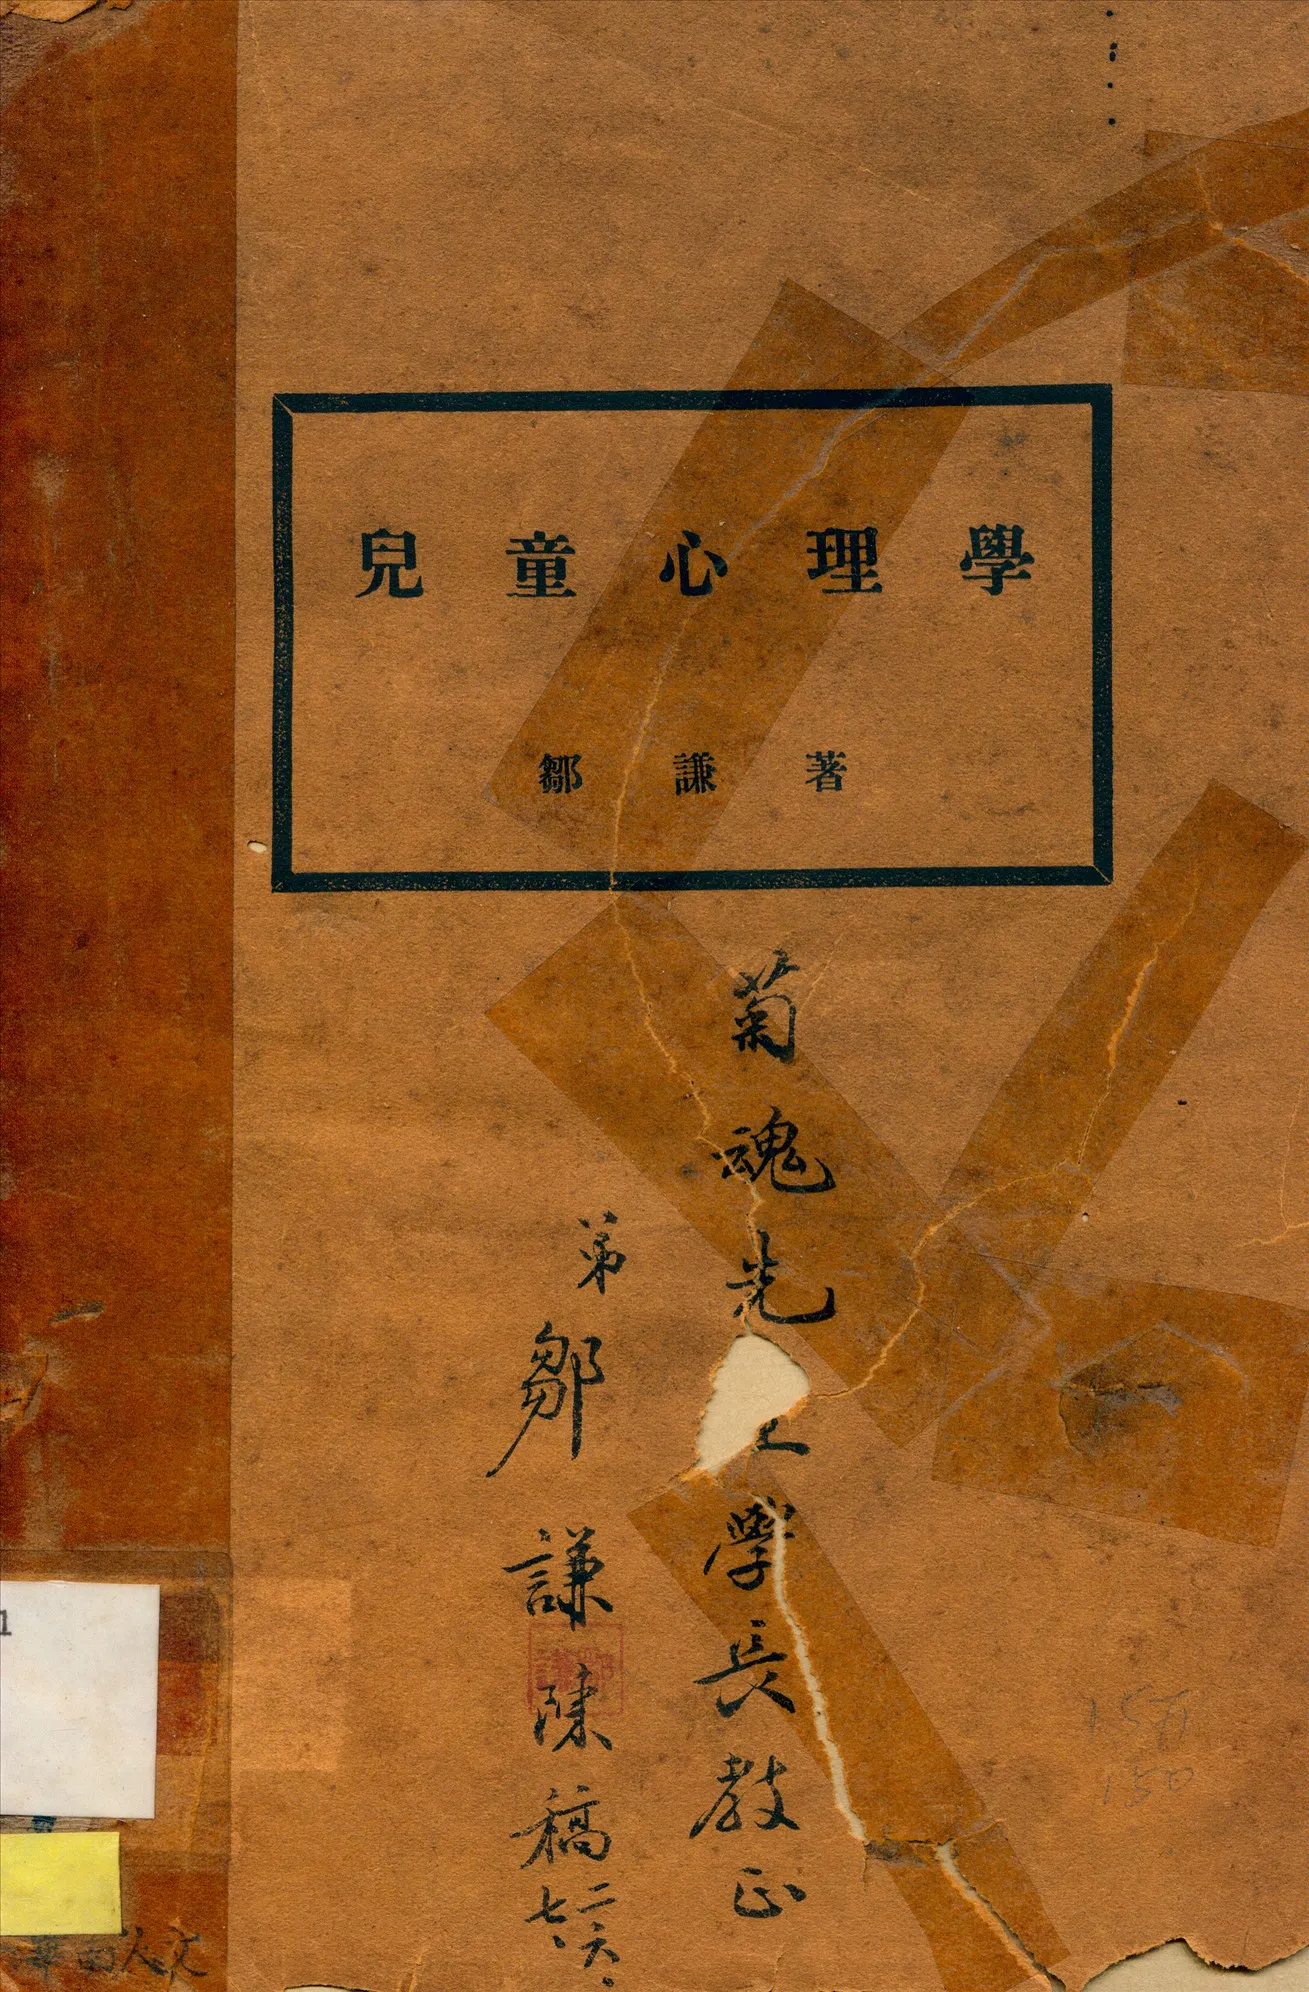 兒童心理學
鄒謙著
菊魂先學長教正
弟鄒謙陳稿
二六、七、
1
1.5
150